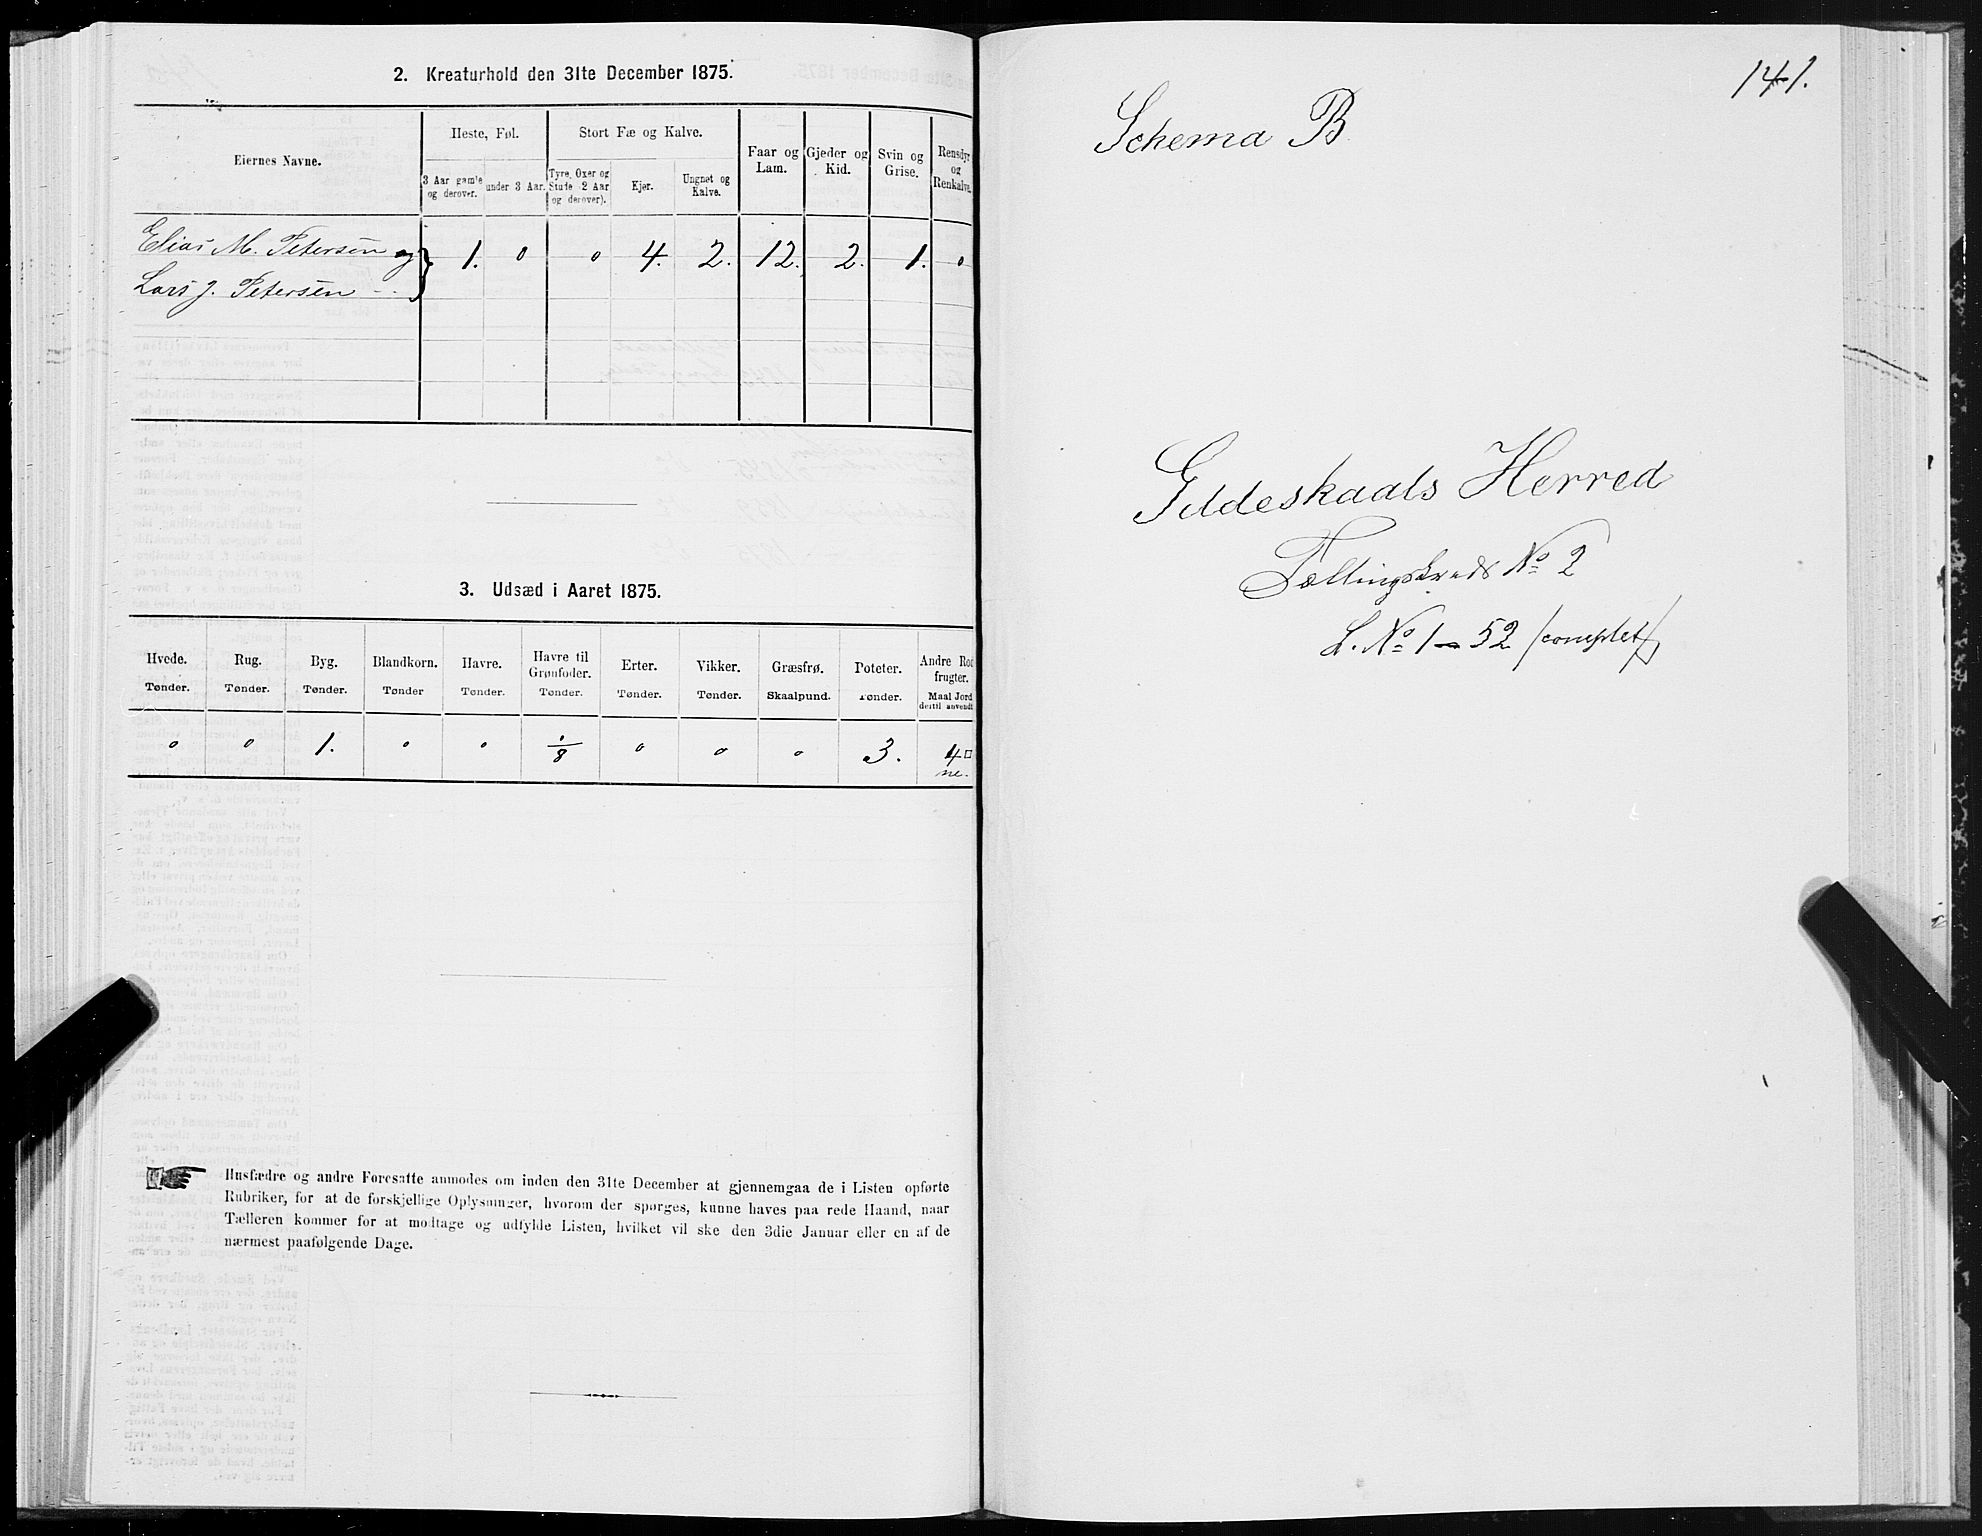 2. Kreaturhold den 31te December 1875.
Eiernes Navne.
Heste, Føl.
Stort Fæ og Kalve.
Faar og Lam.
Gjeder og Kid.
Svin og Grise.
Rensdyr og Renkalve.
3 Aar gamle og derover.
under 3 Aar.
Tyre, Oxer og Stude (2 Aar og derover).
Kjør.
Ungnøt og Kalve.
Elias M. Petersen og } 1. 0 0 4. 2. 12. 2. 1. 0
Lars J. Petersen
3. Udsæd i Aaret 1875.
Hvede. Rug. Byg. Blandkorn. Havre. Havre til Grønfoder. Erter. Vikker. Græsfrø. Poteter. Andre Rodfrugter.
Tønder. Tønder. Tønder. Tønder Tønder. Tønder. Tønder. Tønder. Skaalpund. Tønder. Maal Jord dertil anvendt
0 0 1. 0 0 1/8 0 0 0 3. 4 □
Husfædre og andre Foresatte anmodes om inden den 31te December at gjennemgaa de i Listen opførte
Rubriker, for at de forskjellige Oplysninger, hvorom der spørges, kunne haves paa rede Haand, naar
Tælleren kommer for at modtage og udfylde Listen, hvilket vil ske den 3die Januar eller en af de
nærmest paafølgende Dage.
141.
Schema B.
Gildeskaals Herred
Tællingskreds No 2
L. No 1 - 52 (complet)